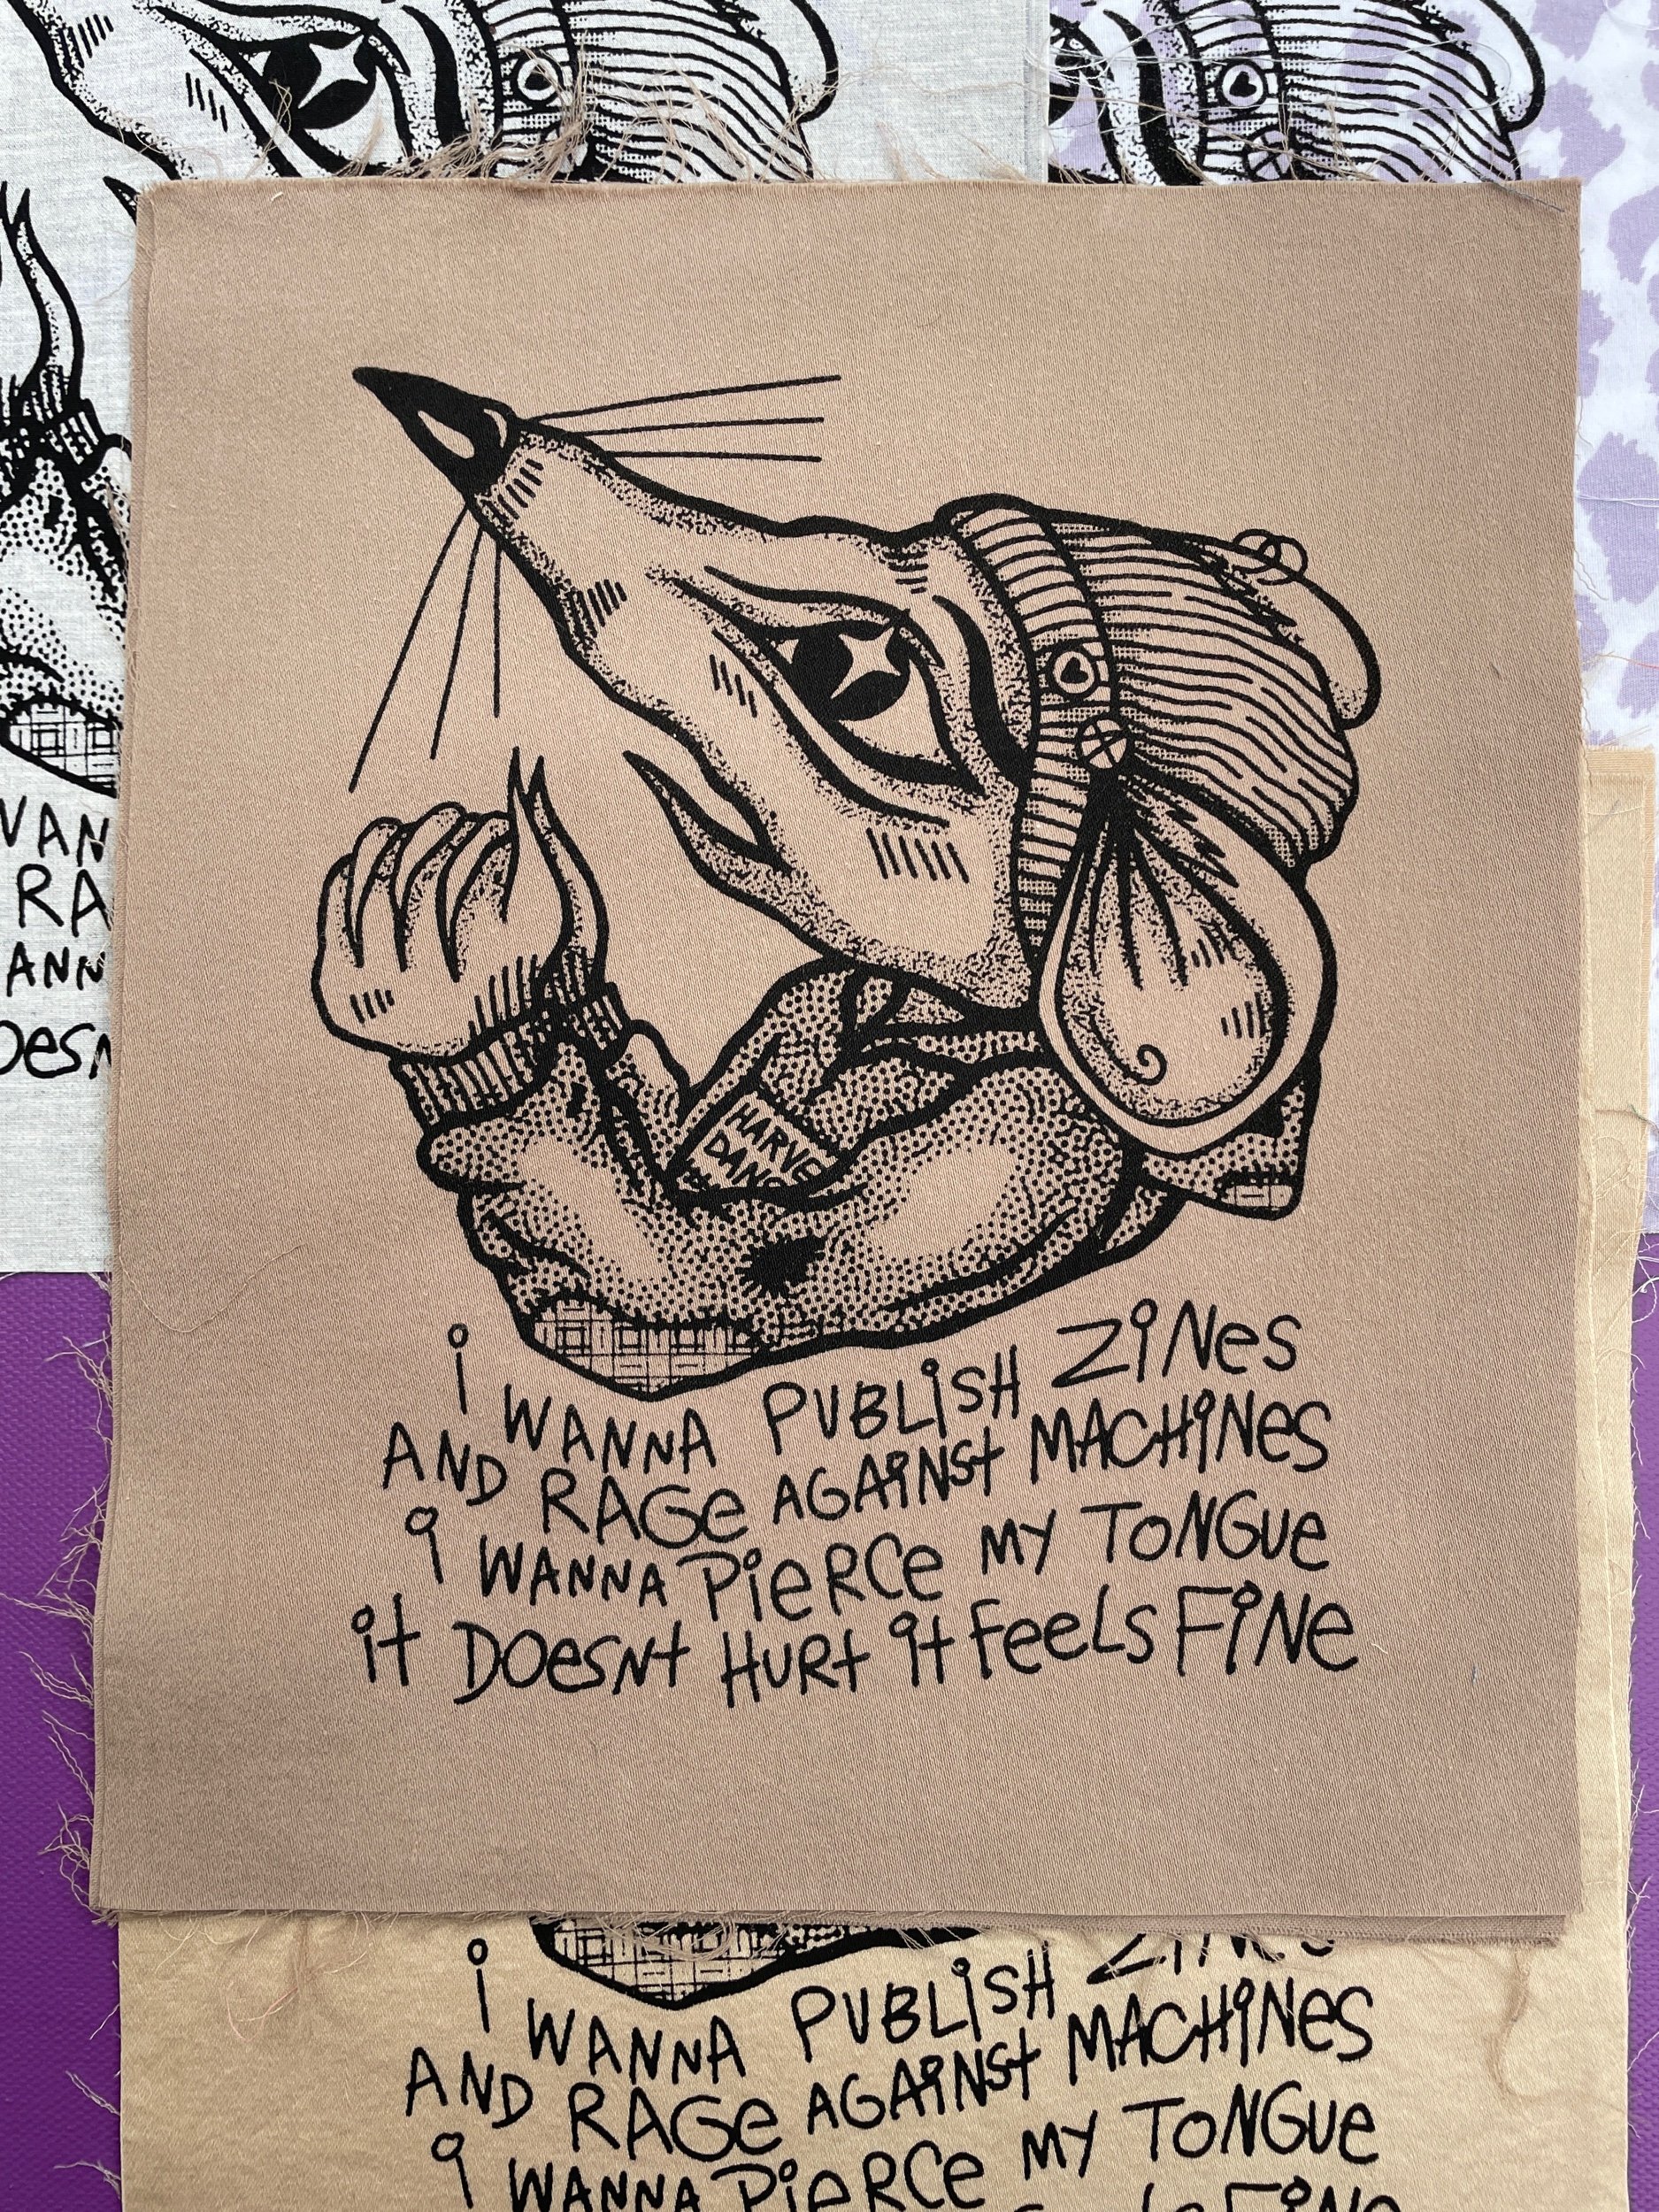 VAN
RA
ANN
OESN
HARVE
DANG
i WANNA PUBLiSH ZiNes
AND RAGe AGAiNSt MACHiNes
i WANNA PieRCe MY TONGUe
it DOesNt HURt it FeeLs FiNe
i WANNA PUBLiSH ZiNes
AND RAGe AGAiNSt MACHiNes
i WANNA PieRCe MY TONGUe